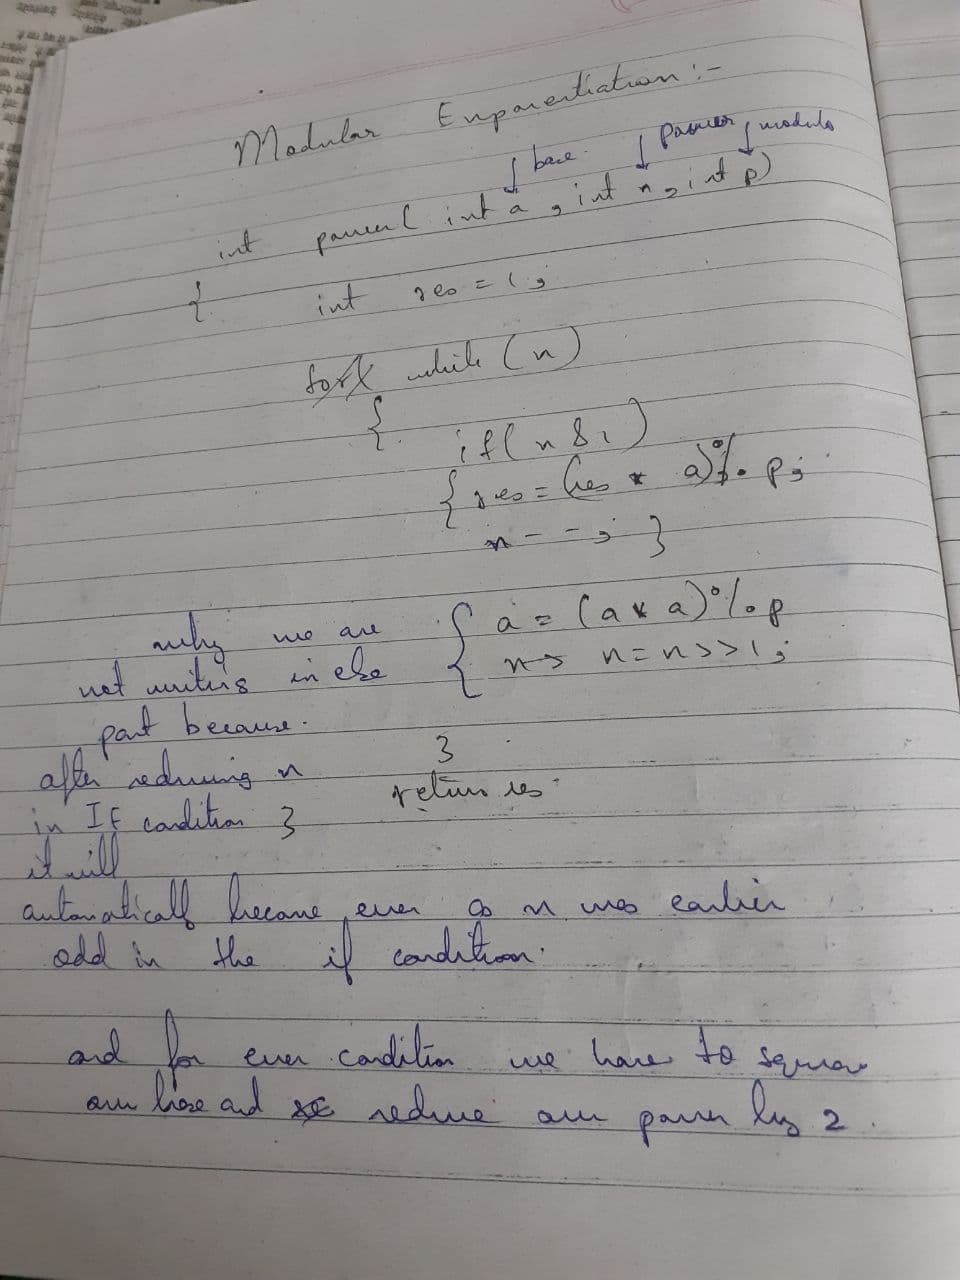 Modular Exponentiation :-
base power modulo
int power( int a , int n , int p)
{ int res = 1 ;
for( while (n)
{
if( n & 1 )
{ res = (res * a) % p ;
n - - ; }
{ a = (a * a) % p
n> n = n >> 1 ;
}
return res
}
why we are
not writing in else
part because.
after reducing n
in IF condition
it will
automatically become even as n was earlier
odd in the if condition.
and for even condition we have to square
our base and reduce our power by 2 .